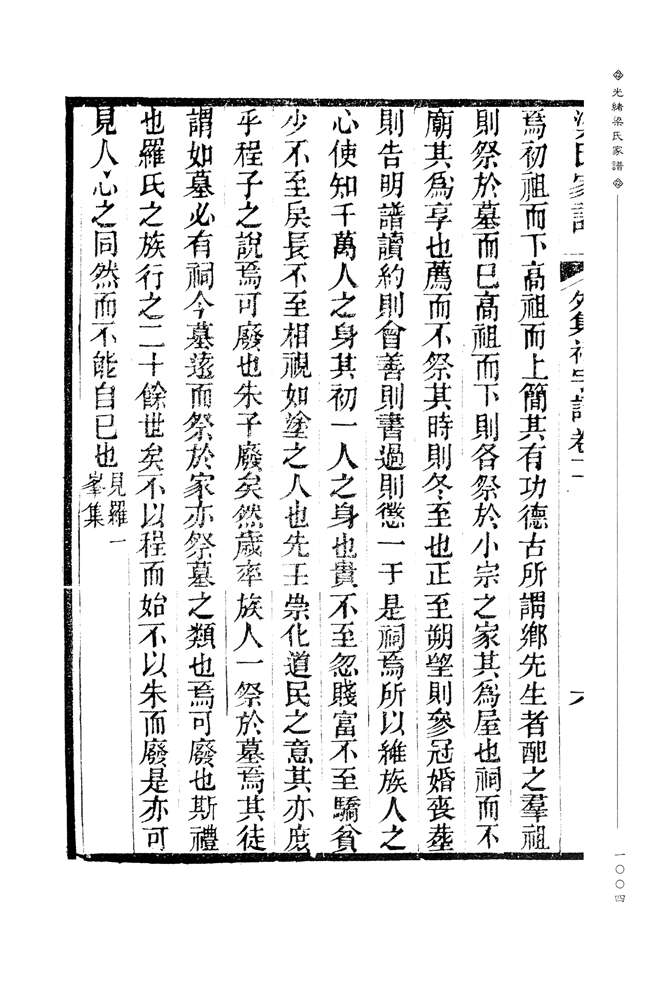 光緒梁氏家譜
一〇〇四
梁氏家譜 外集初宗譜卷二 六
焉初祖而下高祖而上簡其有功德古所謂鄉先生者配之羣祖
則祭於墓而已高祖而下則各祭於小宗之家其爲屋也祠而不
廟其爲享也薦而不祭其時則冬至也正至朔望則參冠婚喪葬
則告明譜讀約則會善則書過則懲一于是祠焉所以維族人之
心使知千萬人之身其初一人之身也貴不至忽賤富不至驕貧
少不至戾長不至相視如塗之人也先王崇化道民之意其亦庶
乎程子之說焉可廢也朱子廢矣然歲率族人一祭於墓焉其徒
謂如墓必有祠今墓遠而祭於家亦祭墓之類也焉可廢也斯禮
也羅氏之族行之二十餘世矣不以程而始不以朱而廢是亦可
見人心之同然而不能自已也見羅一
峯集